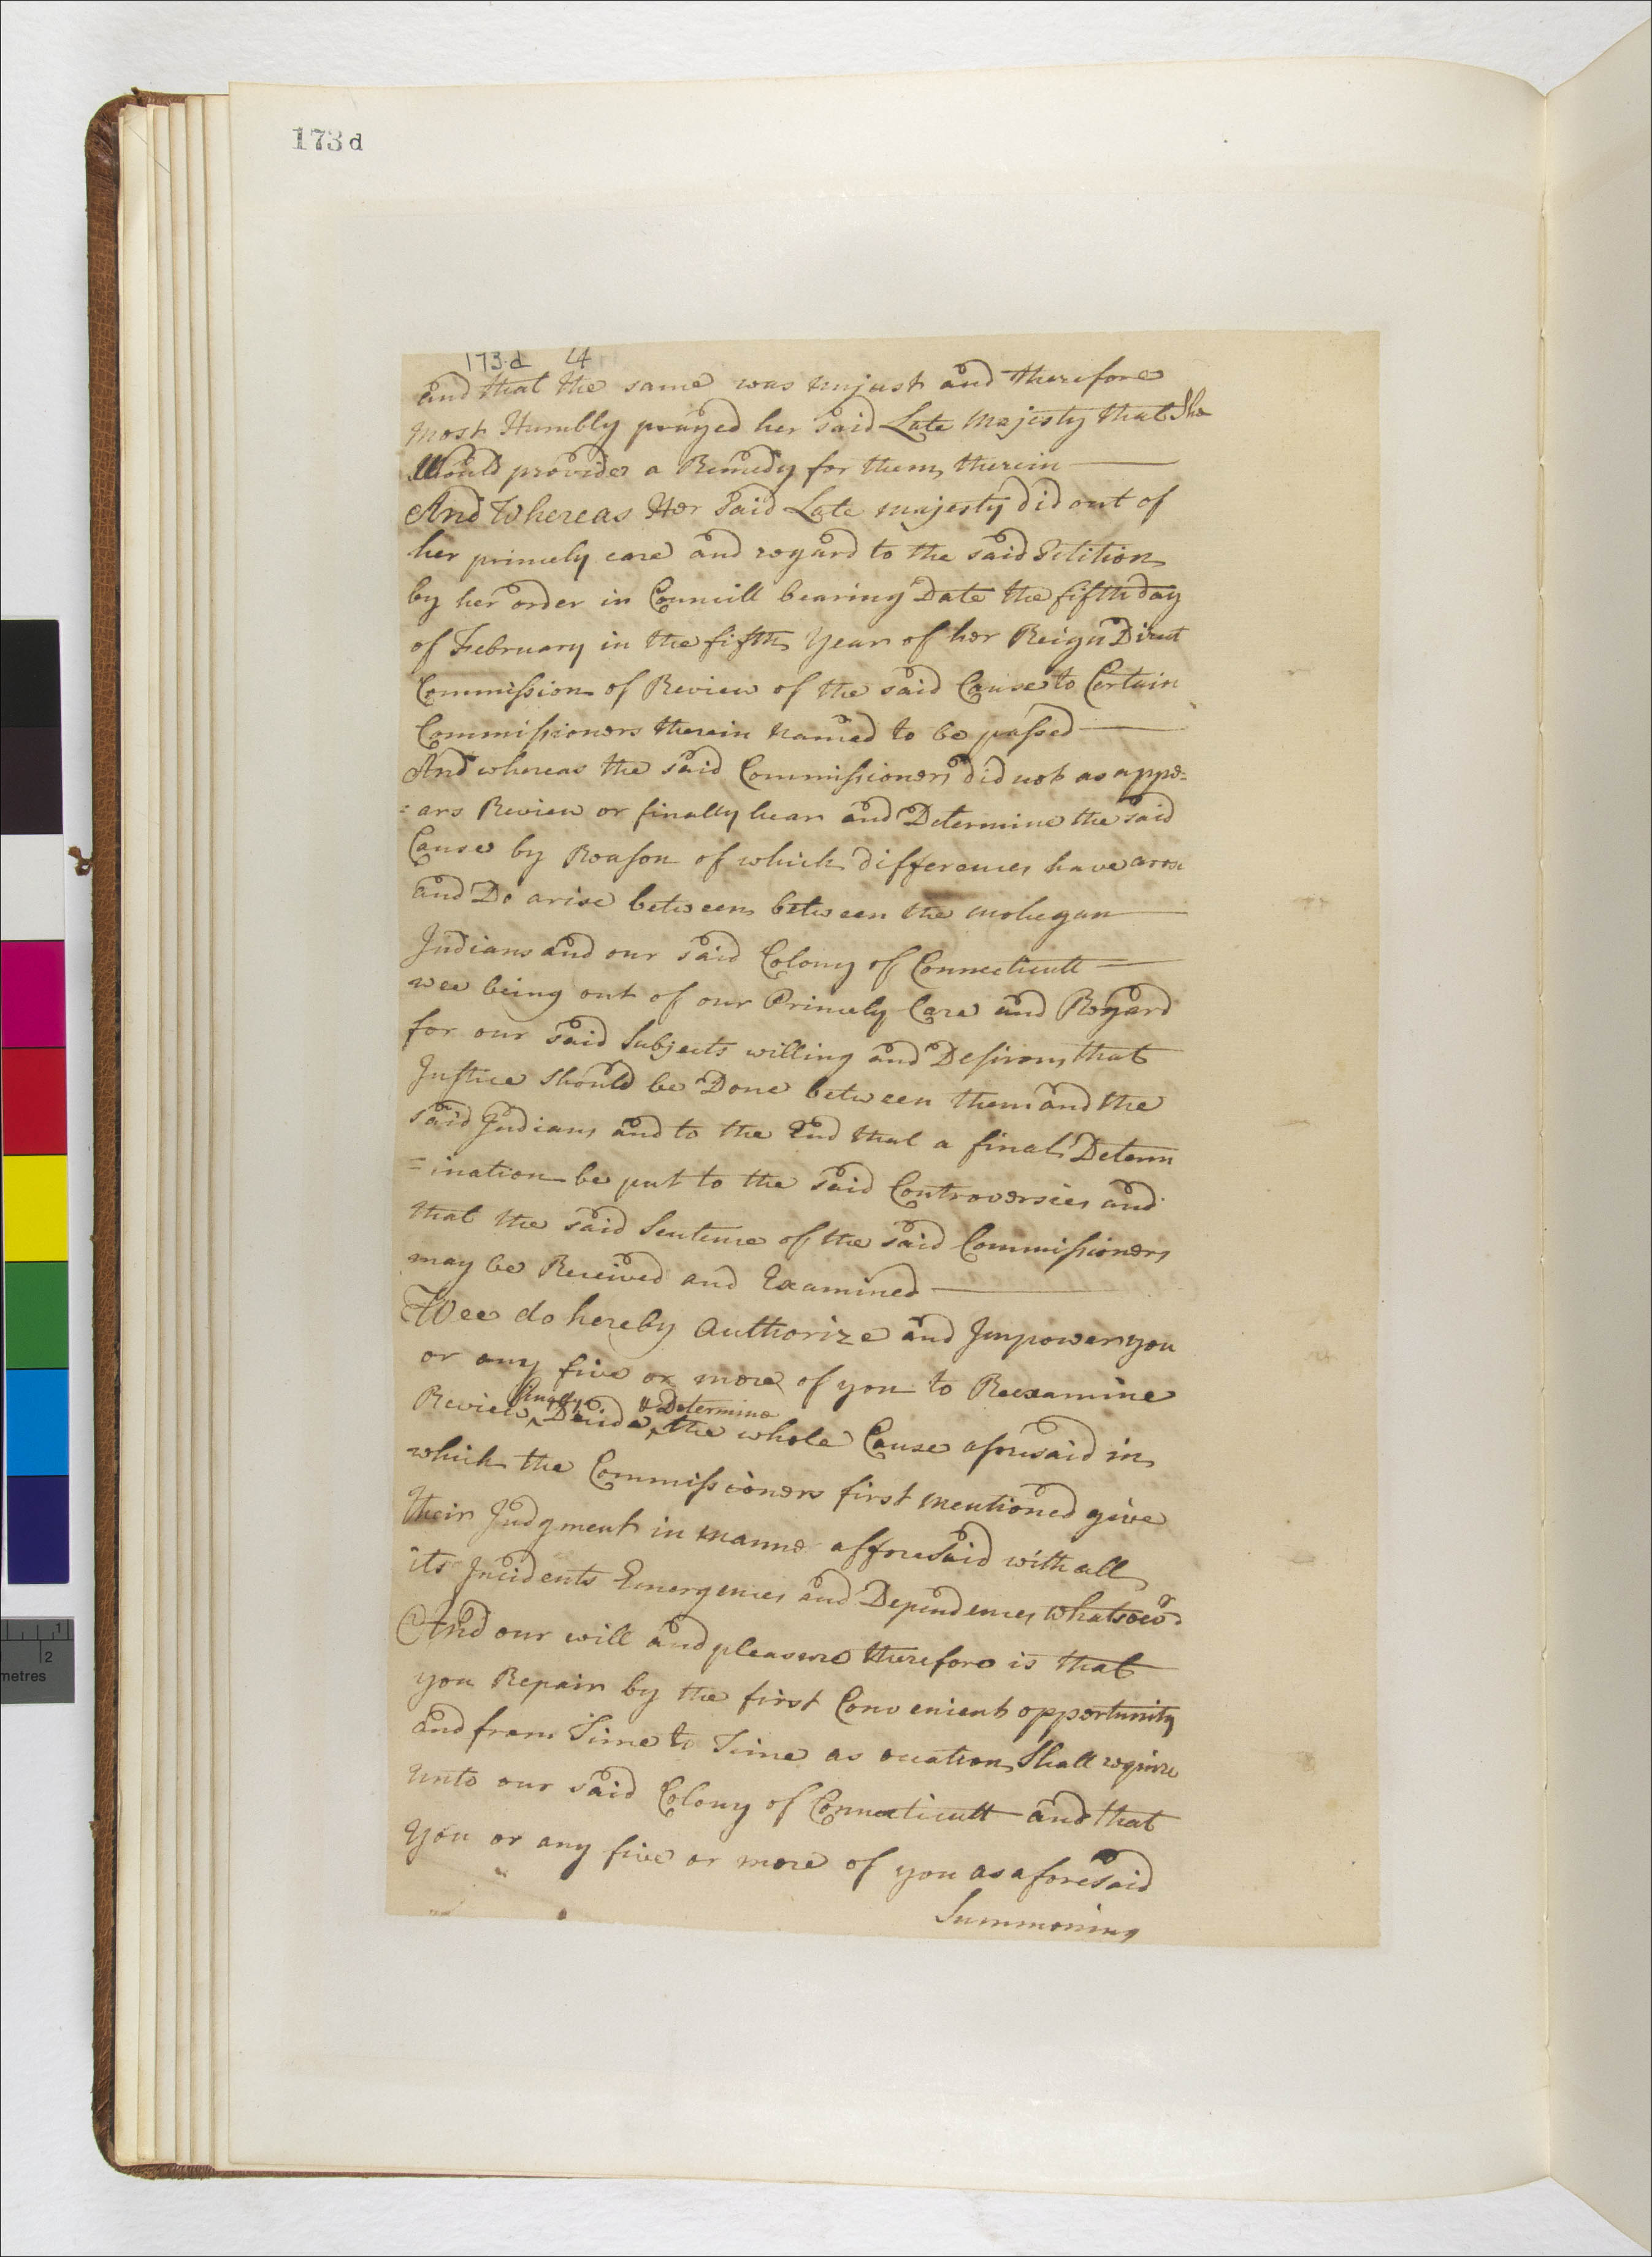 173 d
173.d 4
and that the same was unjust and therefore
most Humbly prayed her said Late Majesty that She
Would provide a Remedy for them therein
And Whereas Her Said Late majesty did out of
her princely care and regard to the said Petition
by her order in Councill bearing Date the fifth day
of February in the fifth Year of her Reign Direct
Commission of Review of the said Cause to Certain
Commissioners therein named to be passed
And whereas the said Commissioners did not as appe=
=ars Review or finally hear and Determine the said
Cause by Reason of which differences have arose
and Do arise between between the mohegan
Indians and our said Colony of Connecticutt
wee being out of our Princely Care and Regard
for our said Subjects willing and Desirous that
Justice should be Done between them and the
said Indians and to the End that a final Determ
=ination be put to the said Controversies and
that the said Sentence of the said Commissioners
may be Received and Examined
Wee do hereby Authorize and Impower you
or any five or more of you to Reexamine
finally & Determine
Review Decide the whole Cause aforesaid in
which the Commissioners first mentioned give
their Judgment in manne afforesaid with all
its Incidents Emergences and Dependences Whatsoevr
And our will and pleasure therefore is that
you Repair by the first Convenient opportunity
and from Time to Time as ocation Shall require
unto our said Colony of Connecticutt and that
You or any five or more of you as aforesaid
Summoning
1
2
metres